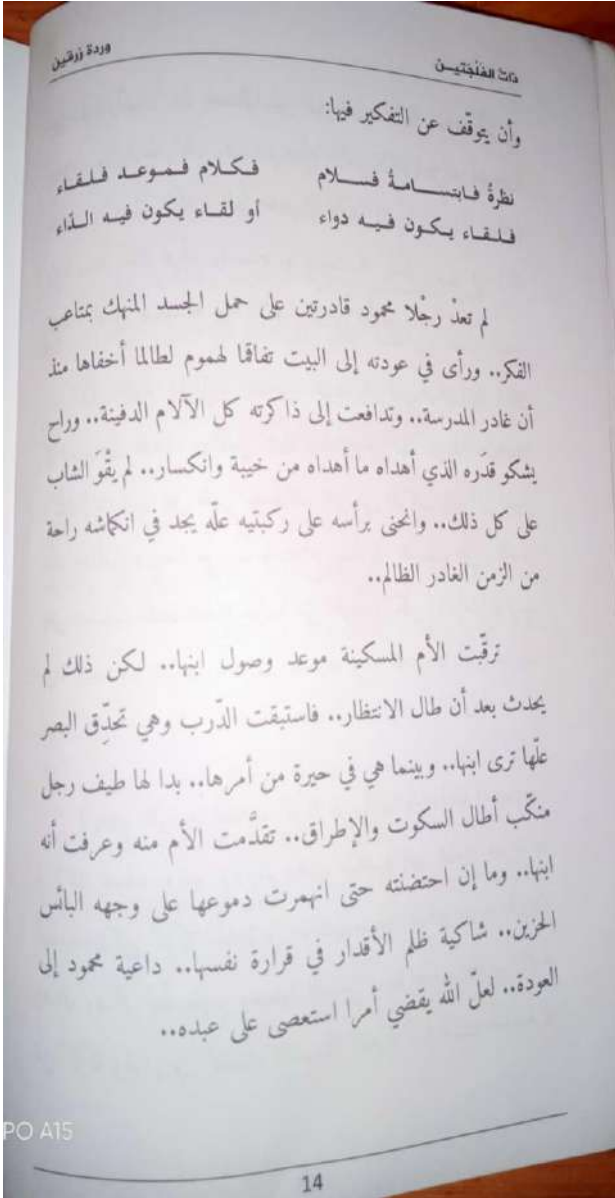 ذات الفلجتيـن
وردة زرقين
وأن يتوقّف عن التفكير فيها:
نظرةُ فـابتســامةُ فســلام فـكـلام فـموعـد فـلـقـاء
فـلـقـاء يـكـون فـيـه دواء أو لقـاء يكون فيـه الـدّاء
لم تعدْ رجْلا محمود قادرتين على حمل الجسد المنهك بمتاعب
الفكر.. ورأى في عودته إلى البيت تفاقما لهموم لطالما أخفاها منذ
أن غادر المدرسة.. وتدافعت إلى ذاكرته كل الآلام الدفينة.. وراح
يشكو قدَره الذي أهداه ما أهداه من خيبة وانكسار.. لم يقْوَ الشاب
على كل ذلك.. وانحنى برأسه على ركبتيه علّه يجد في انكماشه راحة
من الزمن الغادر الظالم..
ترقّبت الأم المسكينة موعد وصول ابنها.. لكن ذلك لم
يحدث بعد أن طال الانتظار.. فاستبقت الدّرب وهي تحدّق البصر
علّها ترى ابنها.. وبينما هي في حيرة من أمرها.. بدا لها طيف رجل
منكّب أطال السكوت والإطراق.. تقدَّمت الأم منه وعرفت أنه
ابنها.. وما إن احتضنته حتى انهمرت دموعها على وجهه البائس
الحزين.. شاكية ظلم الأقدار في قرارة نفسها.. داعية محمود إلى
العودة.. لعلّ الله يقضي أمرا استعصى على عبده..
PO A15
14